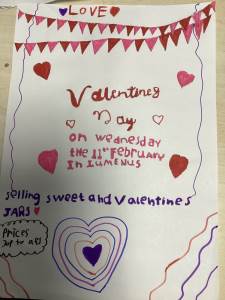 LOVE
Valentines
Day
on wednesday
the 11th February
In Lumenus
selling sweet and Valentines
JARS
Prices